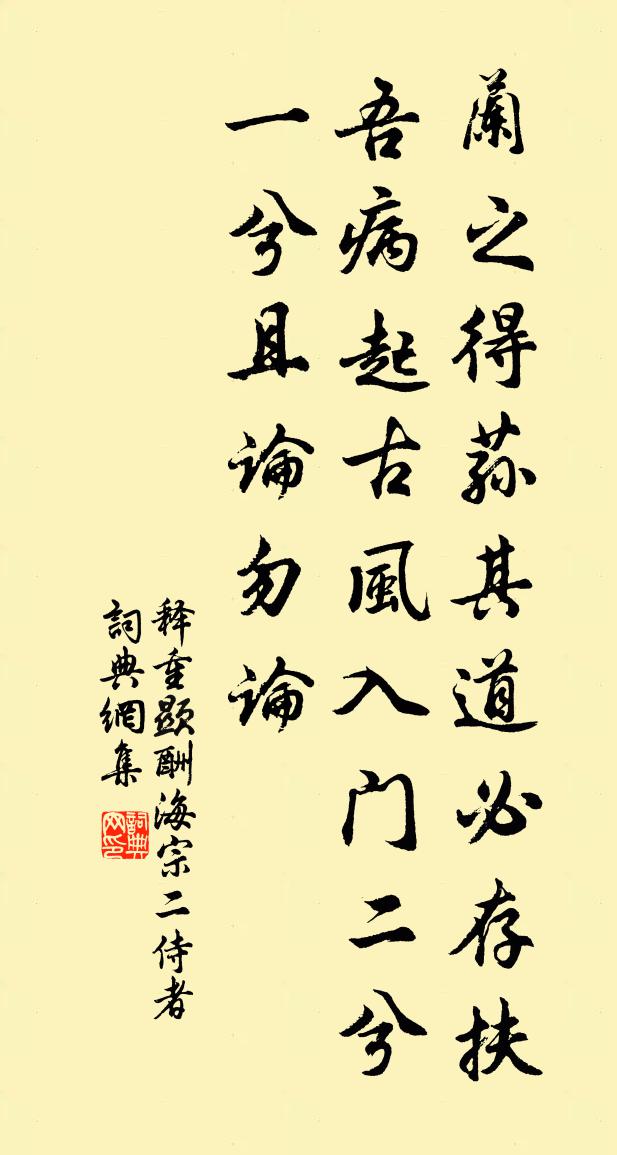 蘭之得荪其道必存扶
吾病起古風入门二兮
一兮且論勿論
释重顯酬海宗二侍者
詞典網集
詞典网印